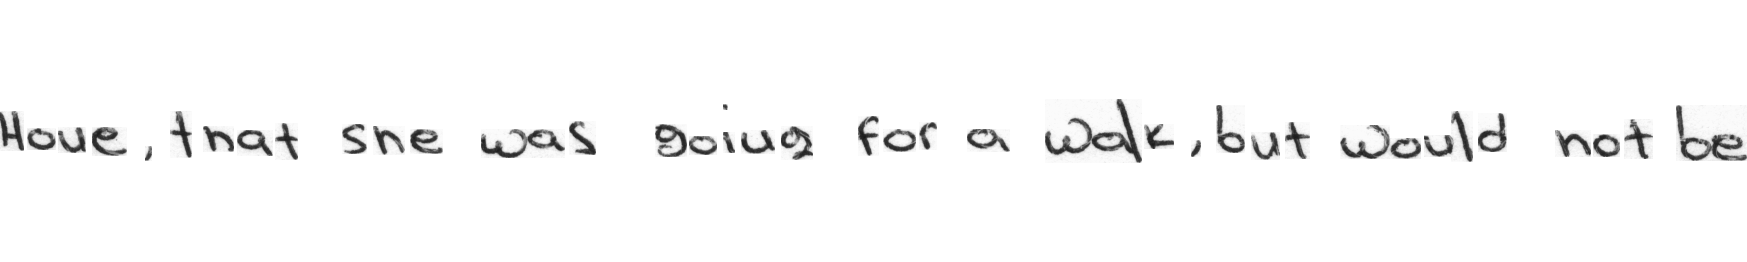 Hove, that she was going for a walk, but would not be